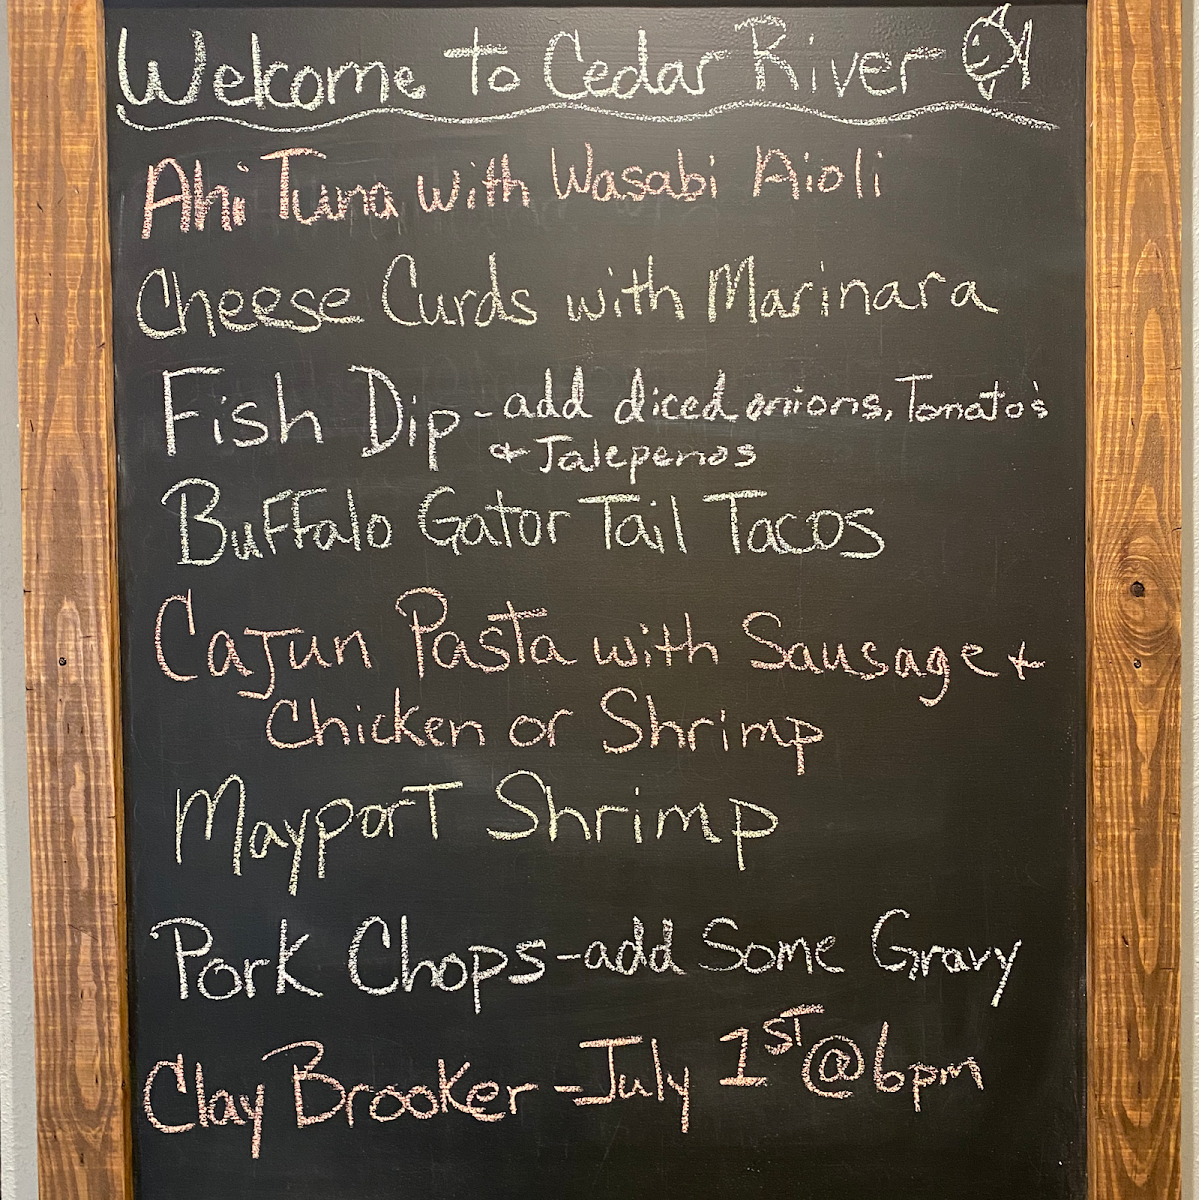 Welcome to Cedar River
Ahi Tuna with Wasabi Aioli
Cheese Curds with Marinara
Fish Dip - add diced onions, Tomato's
& Jalepenos
Buffalo Gator Tail Tacos
Cajun Pasta with Sausage &
Chicken or Shrimp
Mayport Shrimp
Pork Chops - add Some Gravy
Clay Brooker - July 1ST @ 6pm